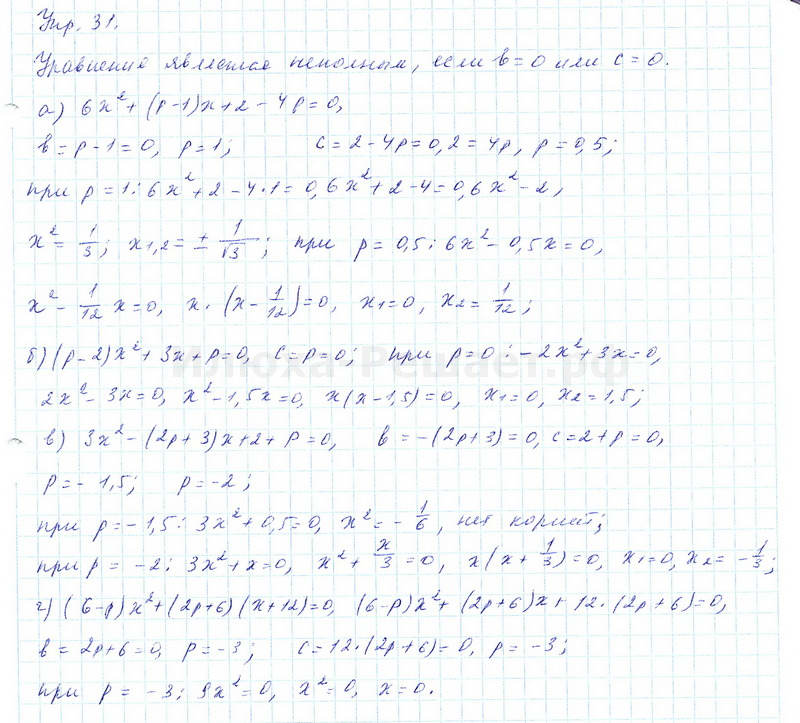 Упр. 31.
Уравнение является неполным, если в=0 или с=0.
а) 6x² + (p-1)x+2-4p=0,
в=p-1=0, p=1; с=2-4p=0, 2=4p, p=0,5;
при p=1: 6x²+2-4·1=0, 6x²+2-4=0, 6x²-2,
x²=1/3; x1,2=±1/√3; при p=0,5: 6x²-0,5x=0,
x²-1/12 x=0, x·(x-1/12)=0, x1=0, x2=1/12;
б) (p-2)x²+3x+p=0, с=p=0; при p=0: -2x²+3x=0,
Илюха-Решает.рф
2x²-3x=0, x²-1,5x=0, x(x-1,5)=0, x1=0, x2=1,5;
в) 3x²-(2p+3)x+2+p=0, в=-(2p+3)=0, с=2+p=0,
p=-1,5; p=-2;
при p=-1,5: 3x²+0,5=0, x²=-1/6, нет корней;
при p=-2: 3x²+x=0, x²+x/3=0, x(x+1/3)=0, x1=0, x2=-1/3;
г) (6-p)x²+(2p+6)(x+12)=0, (6-p)x²+(2p+6)x+12·(2p+6)=0,
в=2p+6=0, p=-3; с=12·(2p+6)=0, p=-3;
при p=-3: 9x²=0, x²=0, x=0.